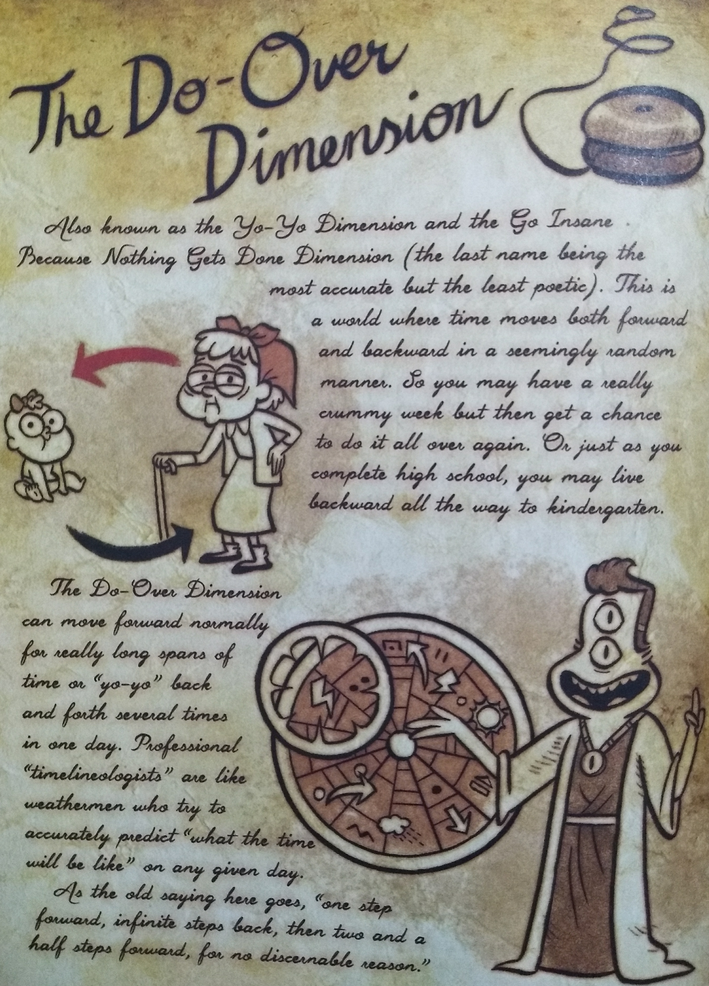 The Do-Over
Dimension
Also known as the Yo-Yo Dimension and the Go Insane
Because Nothing Gets Done Dimension (the last name being the
most accurate but the least poetic). This is
a world where time moves both forward
and backward in a seemingly random
manner. So you may have a really
crummy week but then get a chance
to do it all over again. Or just as you
complete high school, you may live
backward all the way to kindergarten.
The Do-Over Dimension
can move forward normally
for really long spans of
time or "yo-yo" back
and forth several times
in one day. Professional
"timelineologists" are like
weathermen who try to
accurately predict "what the time
will be like" on any given day.
As the old saying here goes, "one step
forward, infinite steps back, then two and a
half steps forward, for no discernable reason."